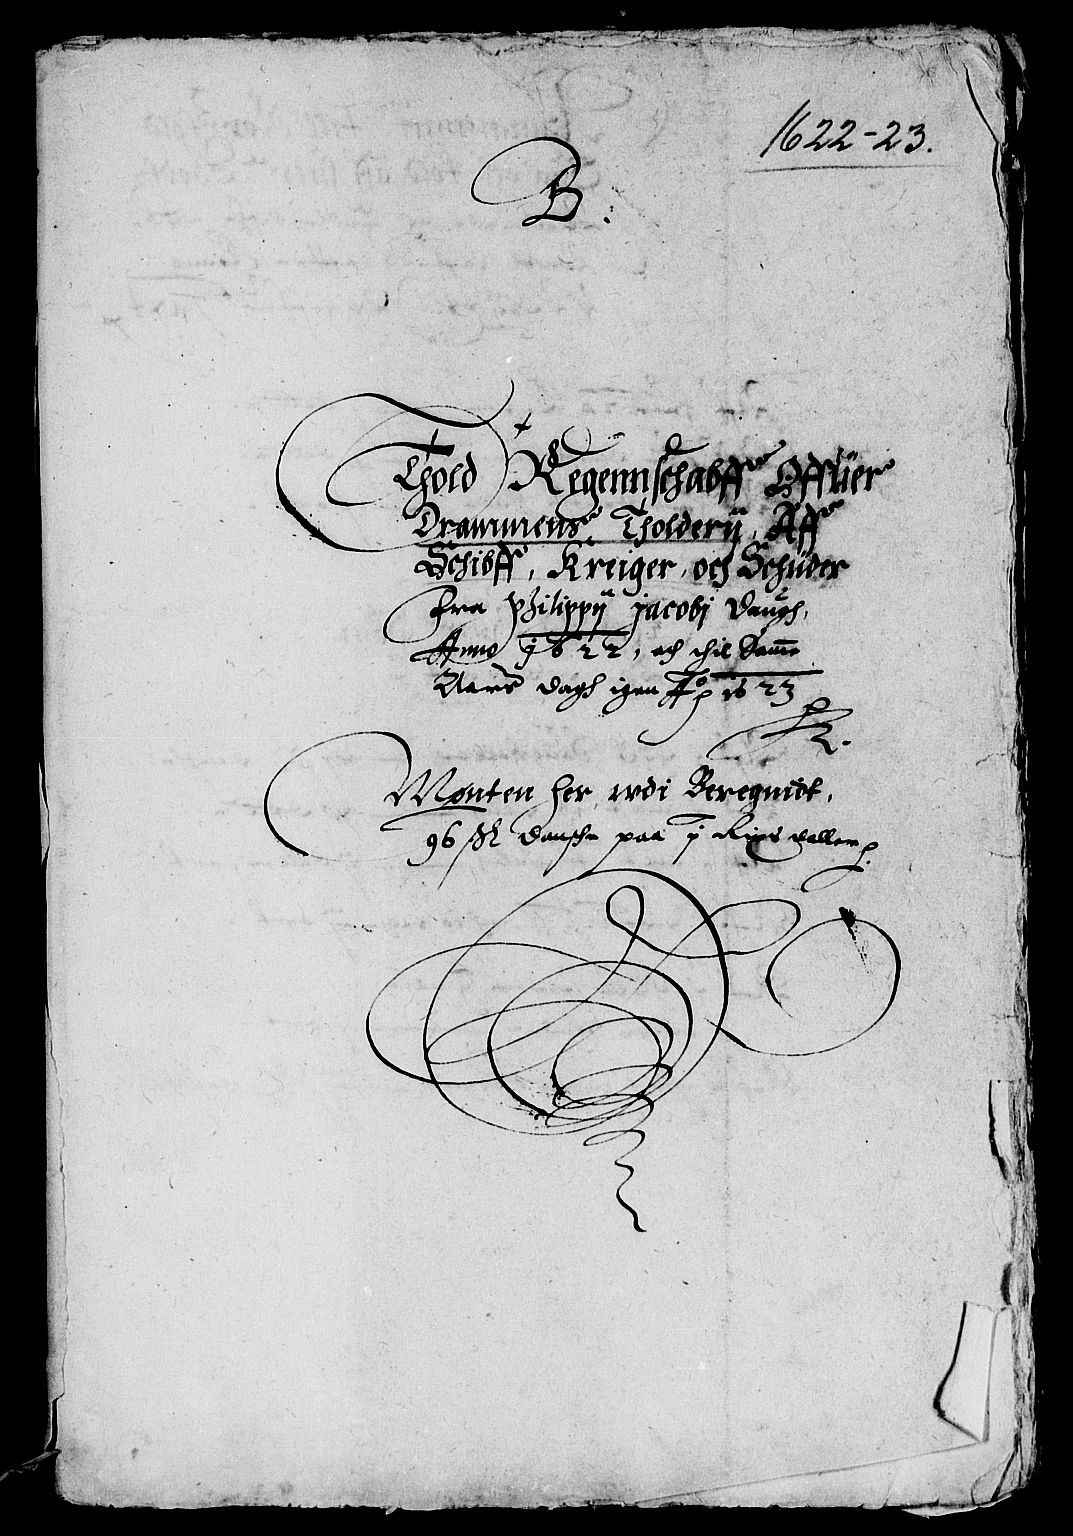 1622-23.
B.
Thold Regennschabff Offuer
Drammens Tholderij, Aff
Schibff, Kreiger, och Schuder
fra Philippij Jacobj daugh,
Anno 1622, och thil Samme
Aars dagh igen Ao 1623
Mønten her wdi Beregnidt,
96 ß Dansche paa j Rixs daller